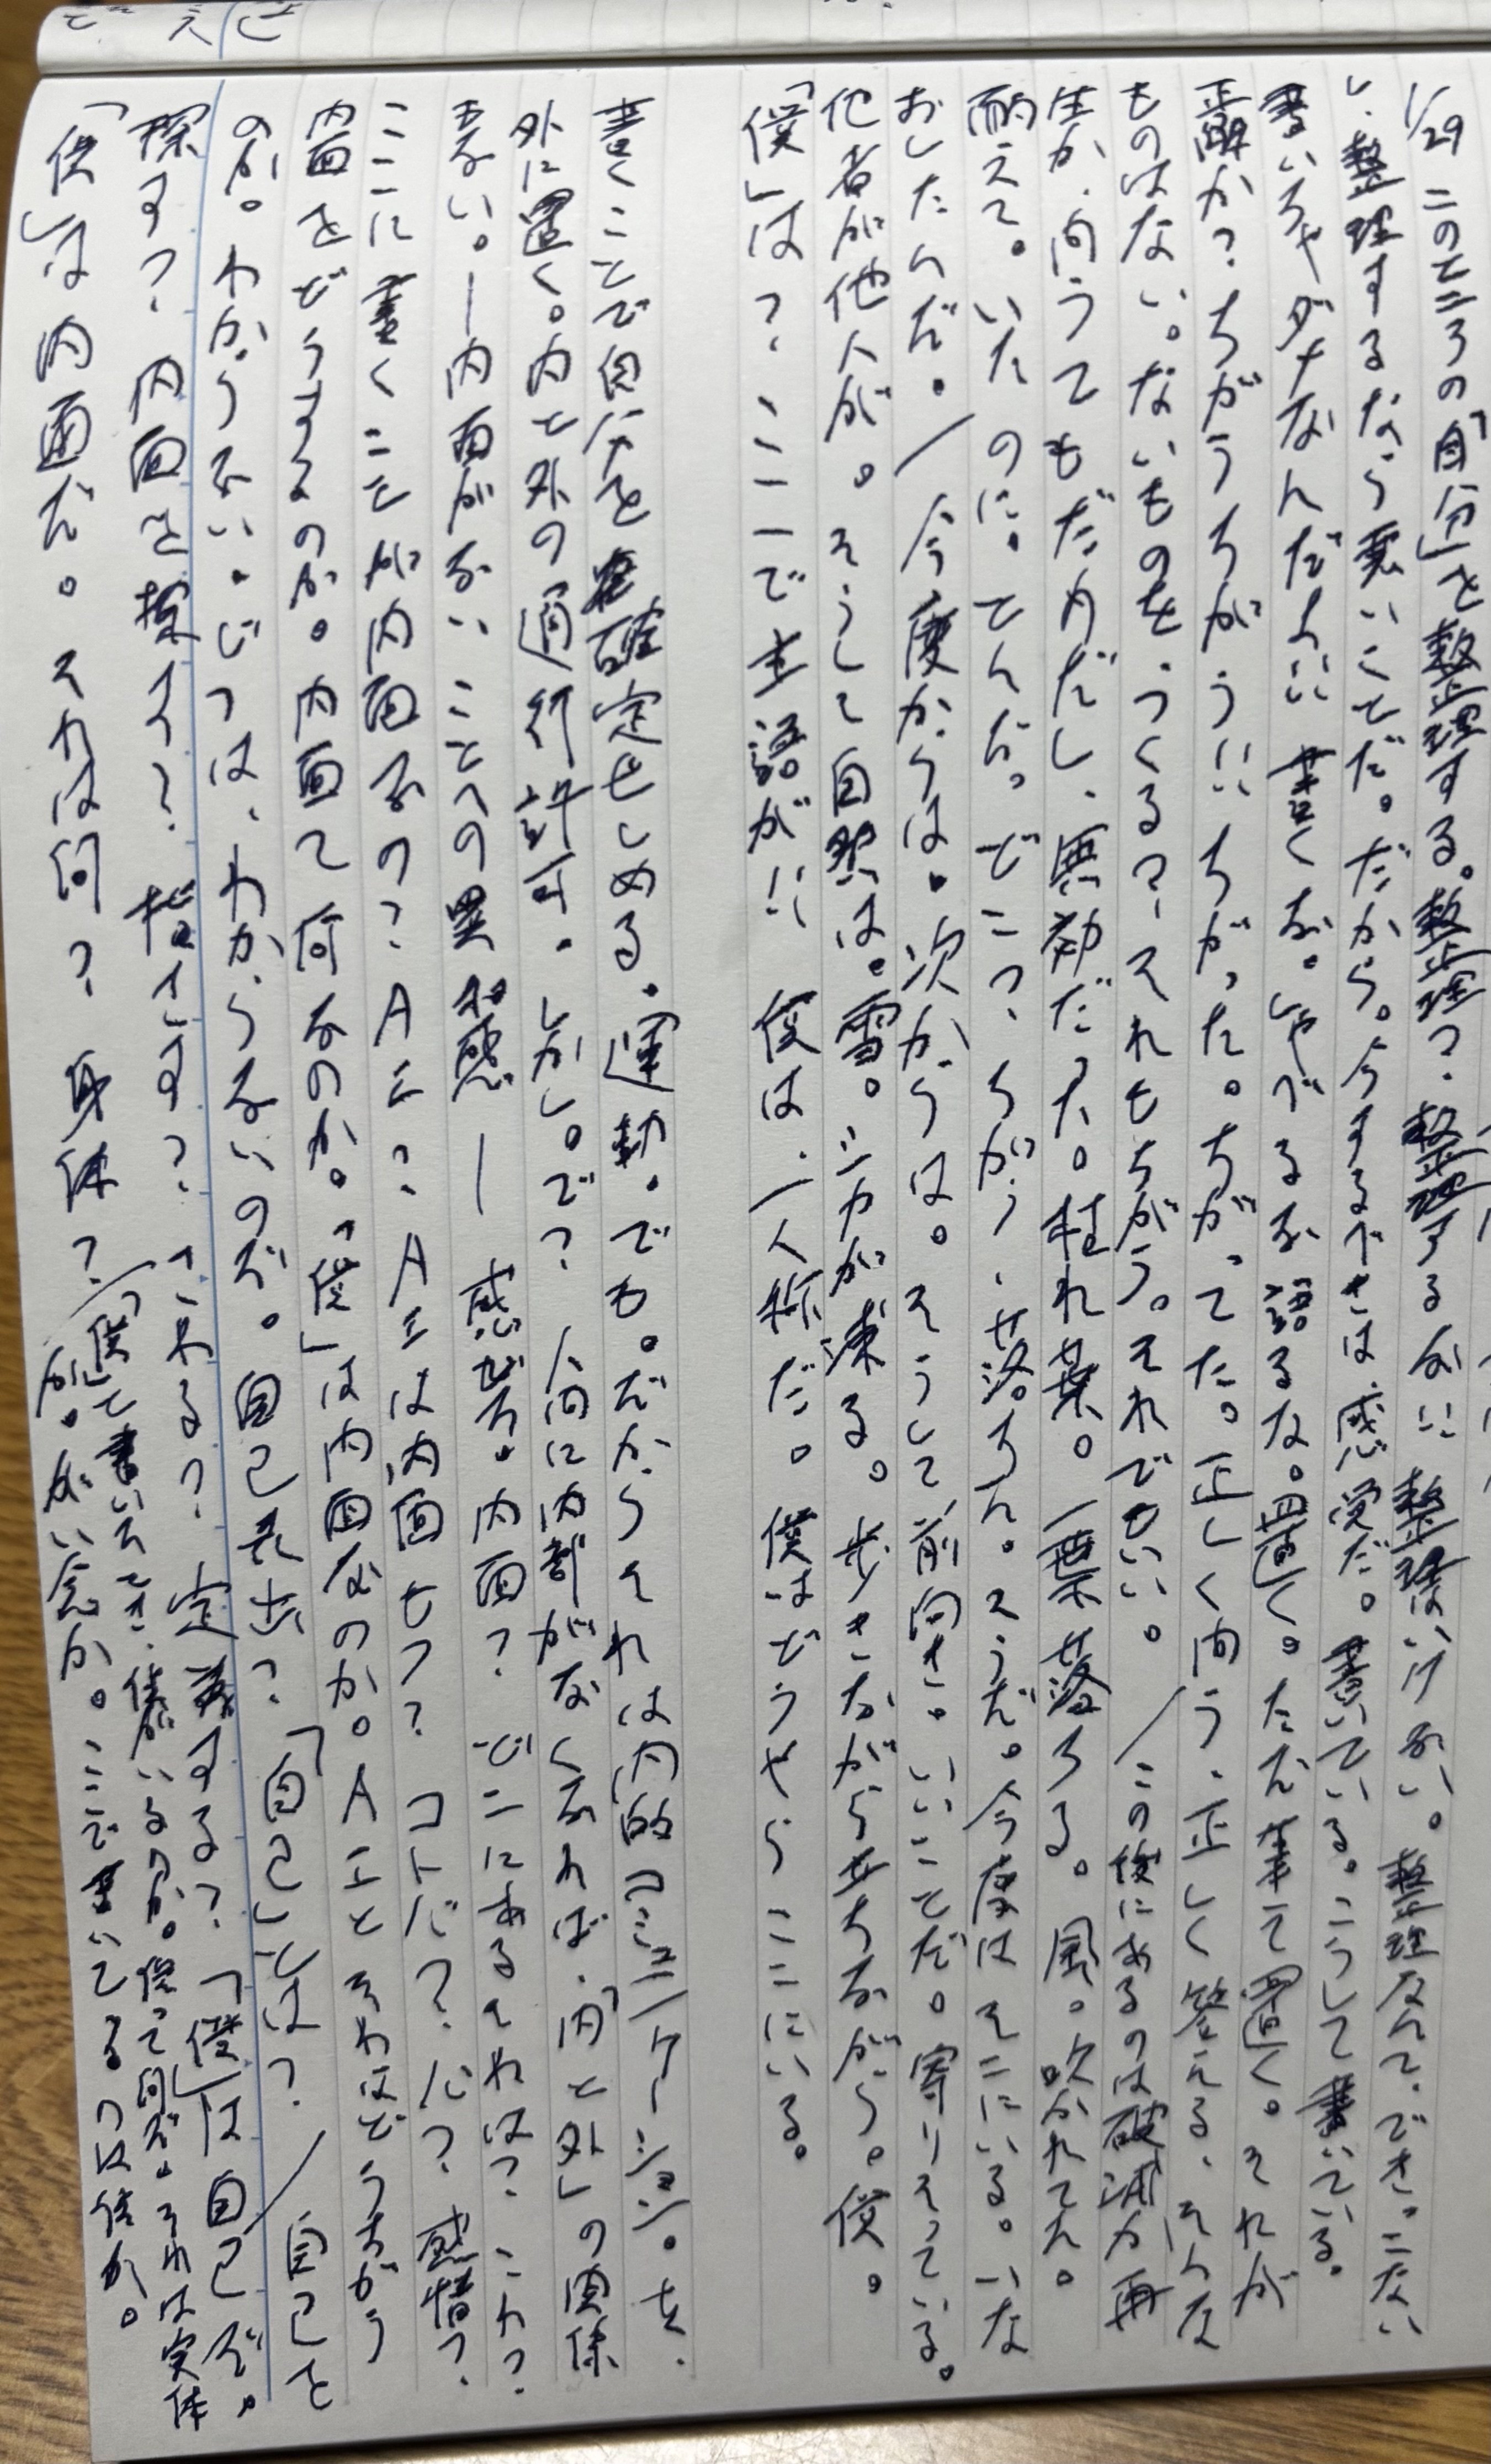 1/29 このところの「自分」を整理する。整理？整理するな!! 整理はいけない。整理なんて、できっこない
し、整理するなら悪いことだ。だから。今するべきは、感受だ。書いている。こうして書いている。
書いちゃダメなんだよ!! 書くな。しゃべるな語るな。置く。ただ筆で置く。それが
正解か？ちがうちがう!! ちがった。ちがってた。正しく向う、正しく答える、そんな
ものはない。ないものを、つくる？それもちがう。それでもいい。／この後にあるのは破滅か再
生か、向うてもだめだし、無効だった。枯れ葉。一葉落ろる。風。吹かれてん。
耐えて。いたのに。てんだ。どこ？ちがう、落ろん。そうだ。今度はそこにいる。いな
おしたんだ。／今度からは。次からは。そうして前向き。いいことだ。寄りそっている。
他者が他人が。そうして自然は。雪。シカが凍る。歩きながら立ちながら。僕。
「僕」は？ここで主語が!! 僕は、一人称だ。僕はどうやらここにいる。
書くことで自分を確定せしめる。運動。でも。だからそれは内的コミュニケーション。を、
外に置く。内と外の「通行許可」。しかし。で？人間に内部がなくなれば、「内と外」の関係
もない。―内面がないことへの異和感― 感じろ。内面？どこにあるそれは？これ？
ここに書くことが内面なの？AI？AIは内面もつ？コトバ？バ？感情？
内面をどうするのか。内面て何なのか。「僕」は内面なのか。AIとそれはどうちがう
のか。わからない。じつは、わからないのだ。自己表出？「自己」とは？／自己を
探す？内面を探す？指さす？される？定義する？「僕」は自己だ。
「僕」は内面だ。それは何？身体？／「僕」て書いたとき、僕がいるのか。僕って何だ。それは実体
か。がい念か。ここで書いてるのは僕か。